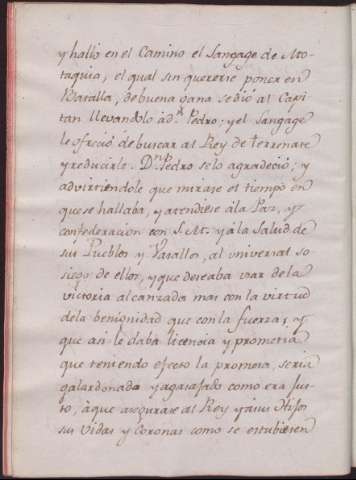 y hallò en el Camino el Sangage de Mo-
taquio, el qual sin quererse poner en
Batalla, de buena gana se diò al Capi-
tan llevandolo à Dⁿ Pedro; y el Sangage
le ofreciò de buscar al Rey de Terrenate
y reducirle. Dⁿ Pedro se lo agradeciò; y
advirtiendole que mirase el tiempo en
que se hallaba, y atendiese à la Paz, y
confederacion con S. M. y à la Salud de
sus Pueblos y Vasallos, al universal so-
siego de ellos, y que deseaba usar de la
victoria alcanzada mas con la virtud
de la benignidad que con la fuerza; y
que asi le daba licencia y prometia
que teniendo efecto la promesa, seria
galardonada y agasajado como era jus-
to, à que asegurase al Rey y à sus Hijos
sus Vidas y Coronas como se estubiesen